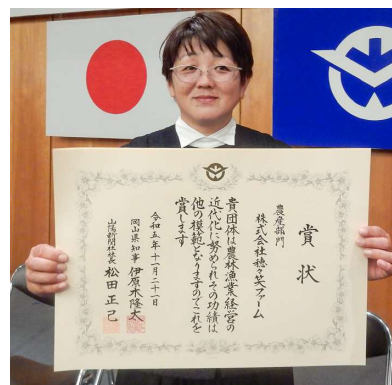 賞状
農産部門
株式会社穂々笑ファーム
貴団体は農林漁業経営の
近代化に努められその功績は
他の模範となりますのでこれを
賞します
令和五年十一月二十一日
岡山県知事 伊原木隆太
山陽新聞社社長 松田正己